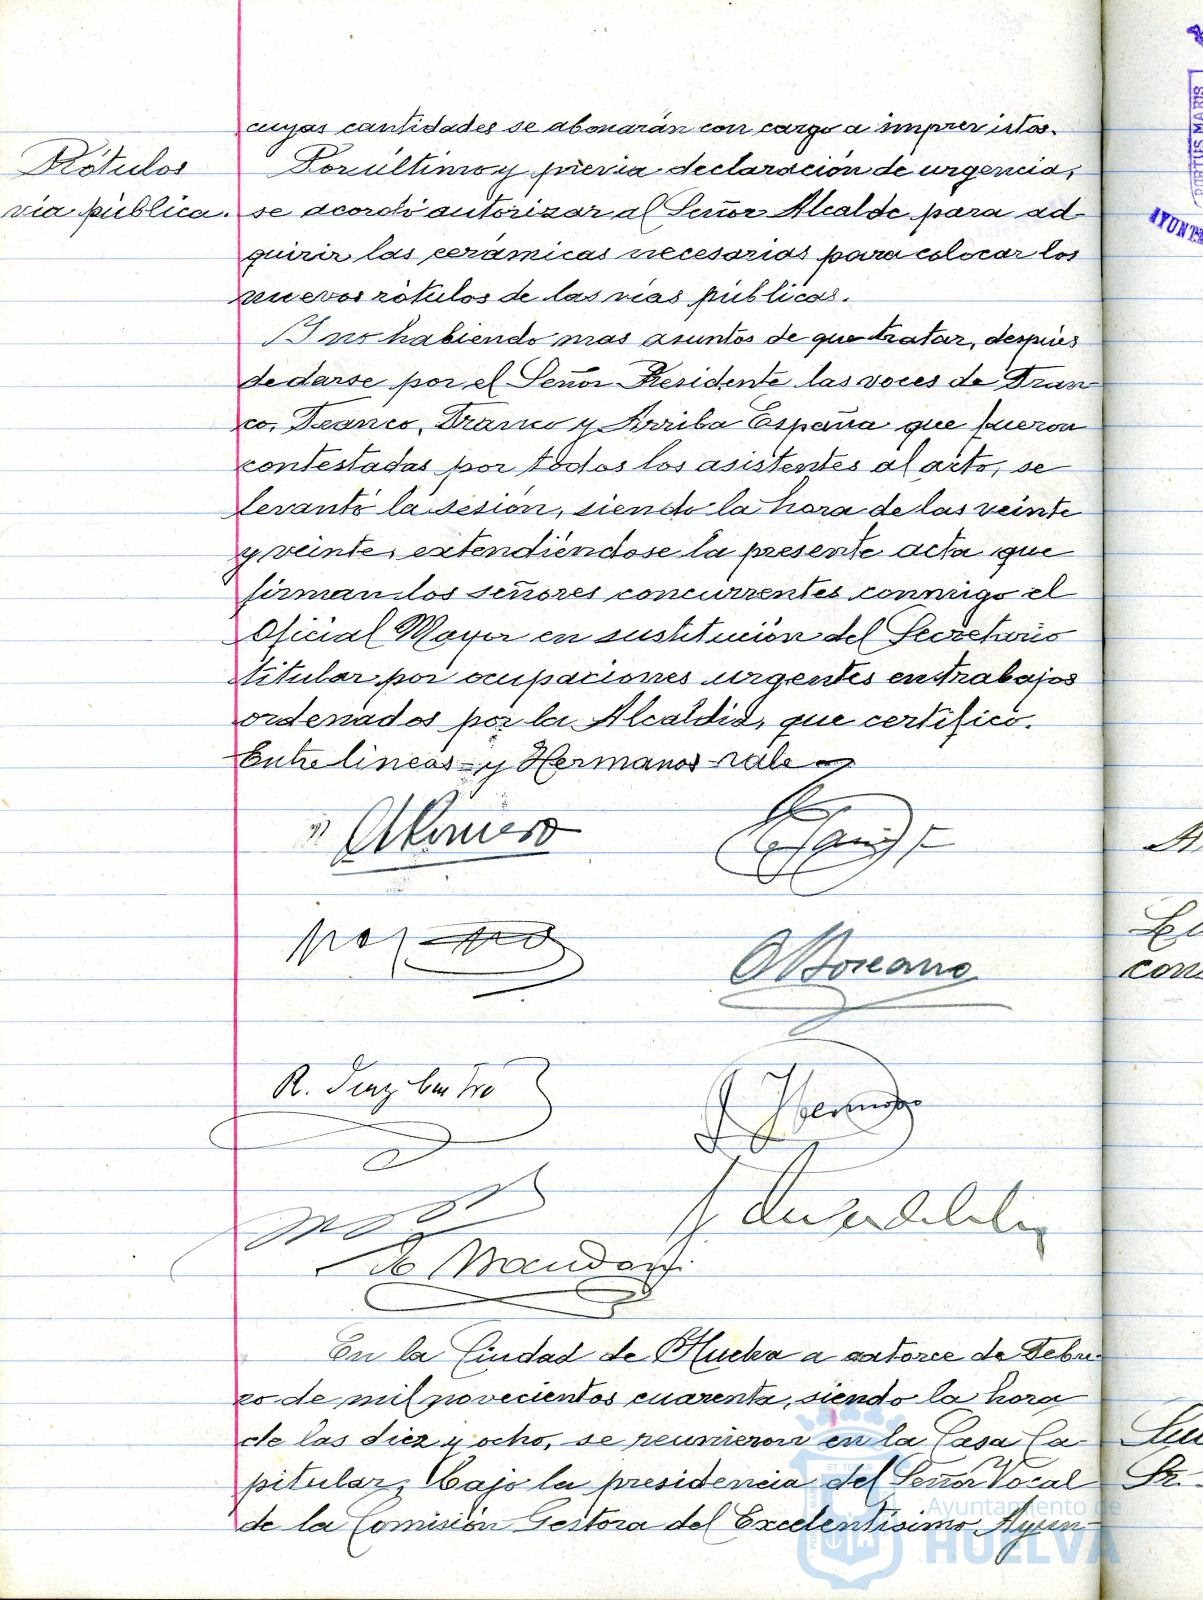 cuyas cantidades se abonarán con cargo a imprevistos.
Rótulos
vía pública.
Por último y previa declaración de urgencia,
se acordó autorizar al Señor Alcalde para ad-
quirir las cerámicas necesarias para colocar los
nuevos rótulos de las vías públicas.
Y no habiendo mas asuntos de que tratar, después
de darse por el Señor Presidente las voces de Fran-
co, Franco, Franco y Arriba España que fueron
contestadas por todos los asistentes al acto, se
levantó la sesión, siendo la hora de las veinte
y veinte, extendiéndose la presente acta que
firman los señores concurrentes conmigo el
Oficial Mayor en sustitución del Secretario
titular por ocupaciones urgentes en trabajos
ordenados por la Alcaldía, que certifico.
Entre lineas-y Hermanos-vale
Romero
R. Diaz
En la Ciudad de Huelva a catorce de Febre-
ro de mil novecientos cuarenta, siendo la hora
de las diez y ocho, se reunieron en la Casa Ca-
pitular, bajo la presidencia del Señor Vocal
de la Comisión Gestora del Excelentísimo Ayun-
Ayuntamiento de
HUELVA
PORTUS MARIS
AYUNT